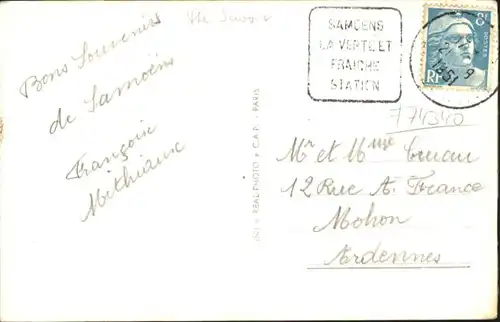 Bons Souvenirs
de Samoëns
Françoise
Hte Savoie
SAMOENS
LA VERTE ET
FRAICHE
STATION
8F
POSTES
RF
21
9
1951
774340
REAL-PHOTO • C.A.P. - PARIS
Mr et Mme
12 Rue A. France
Mohon
Ardennes